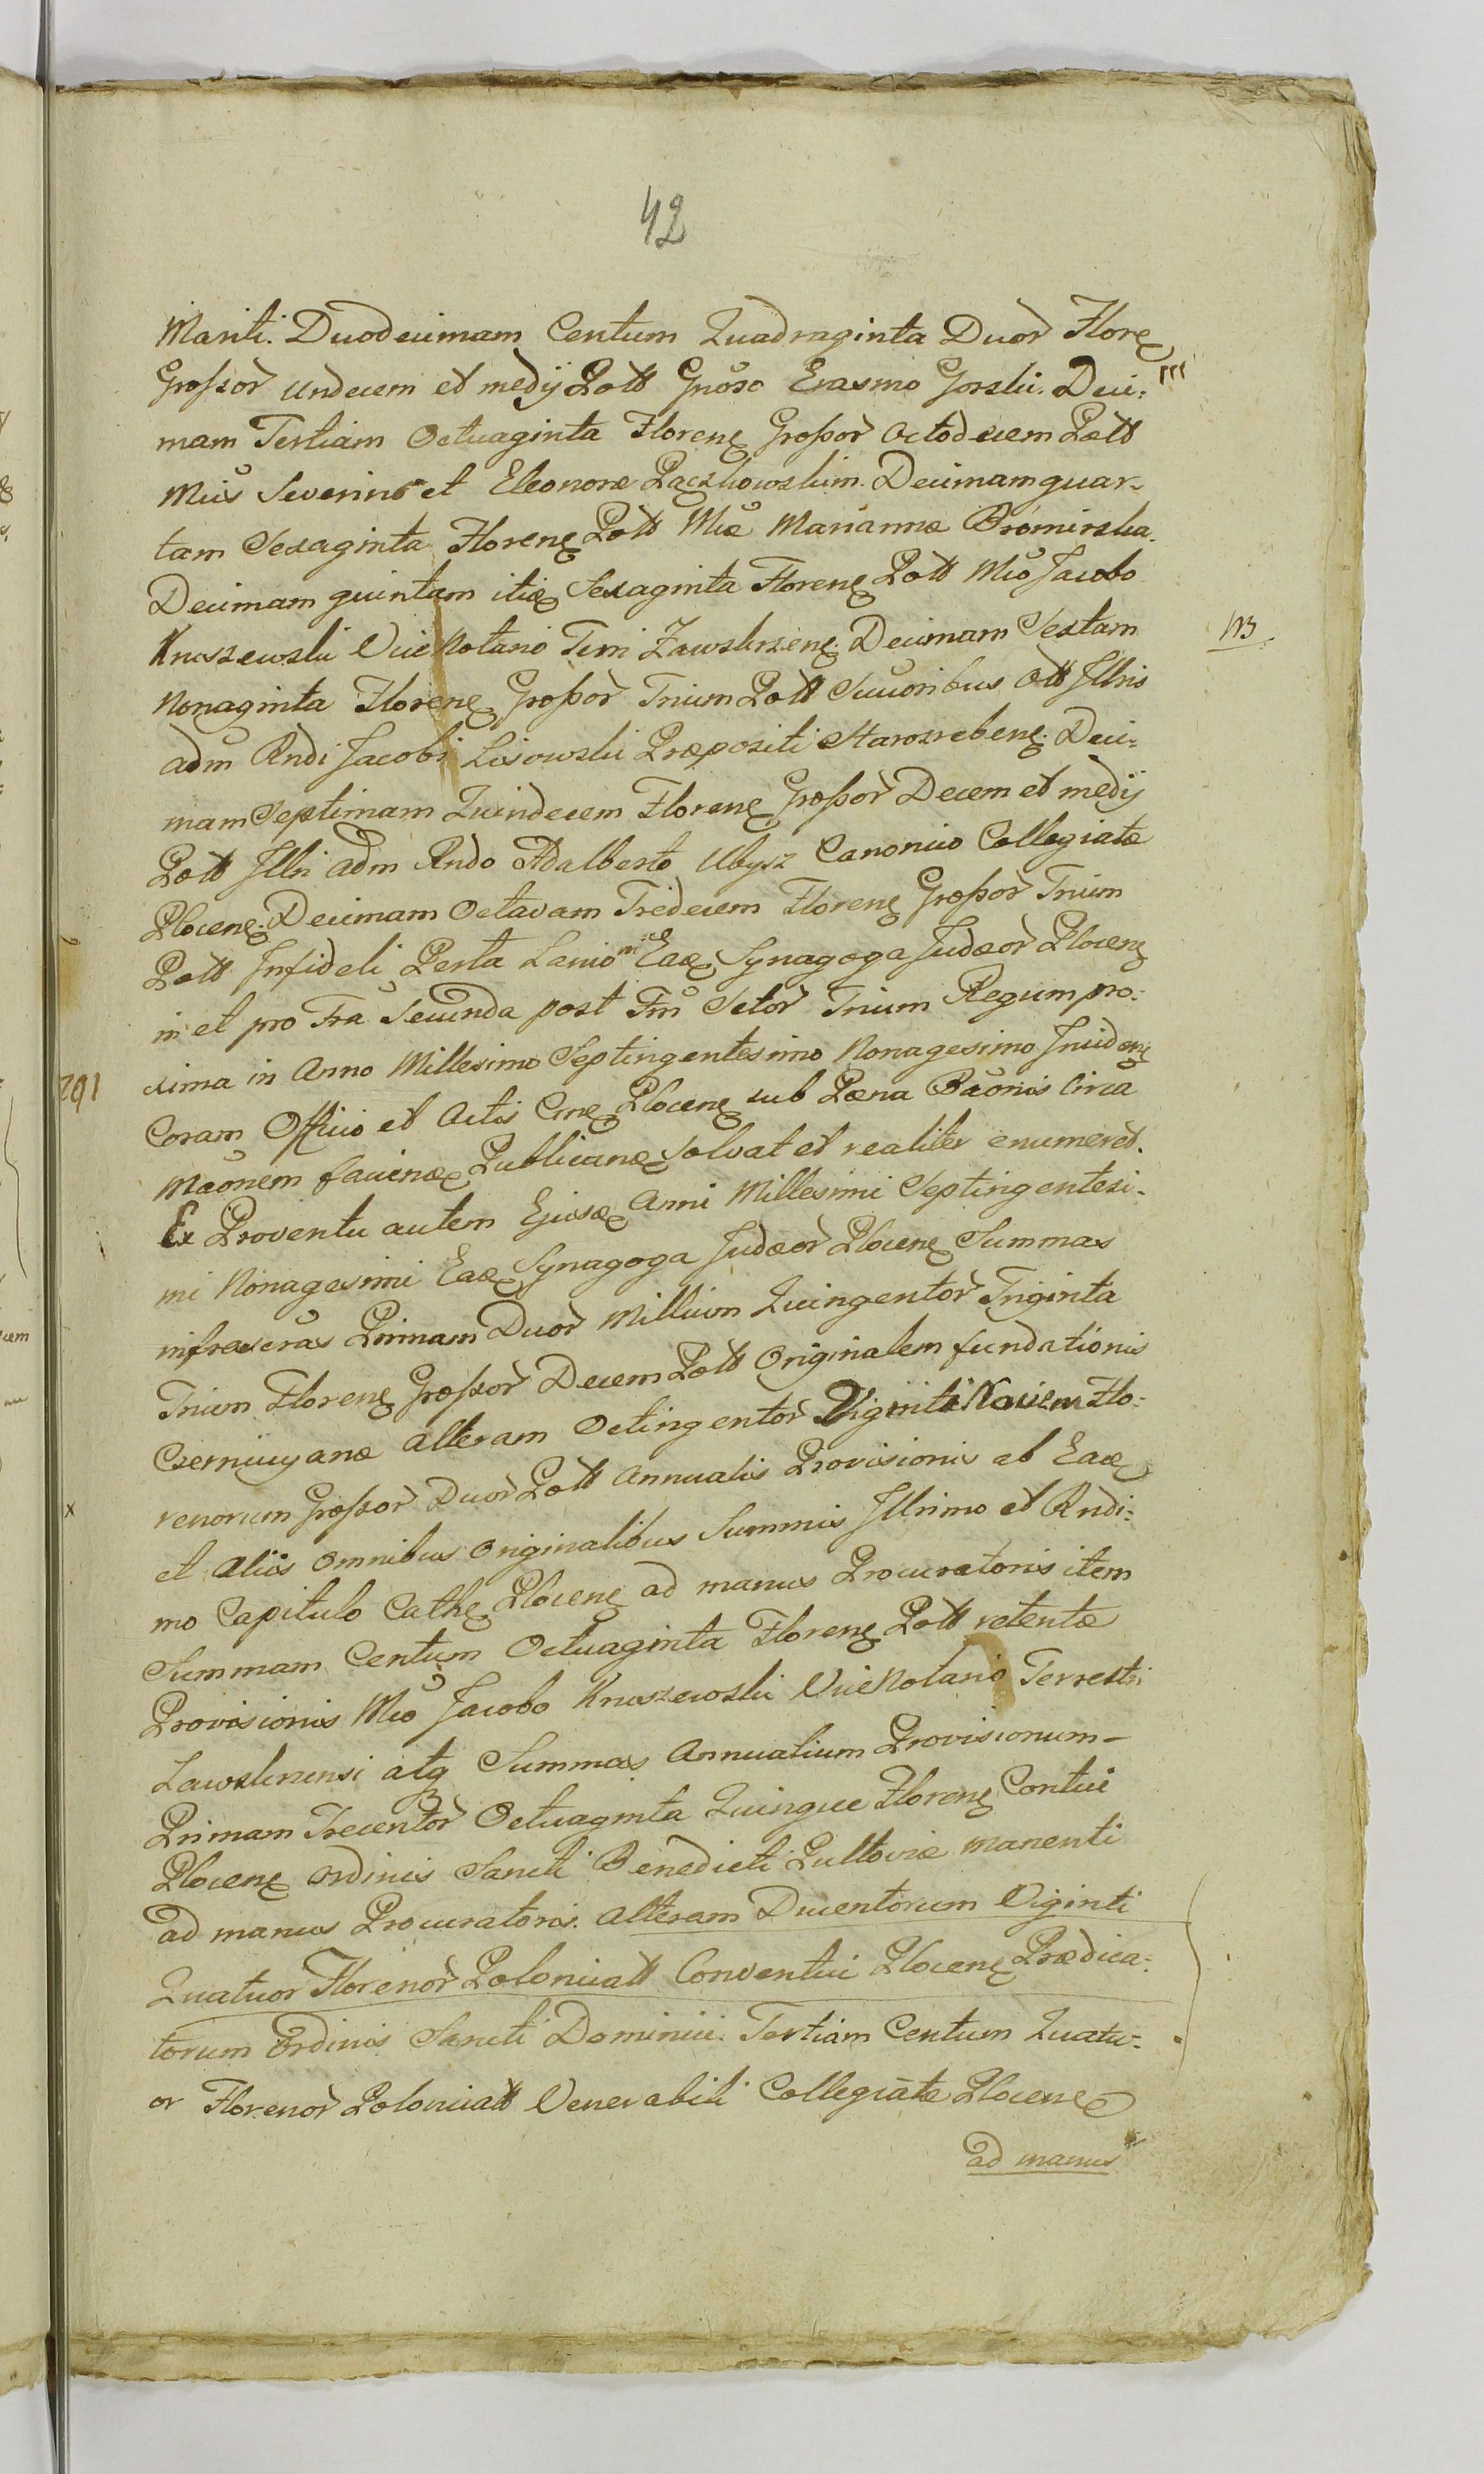 42
Mariti. Duodecimam Centum Quadraginta Duor Floreꝫ
Großor undecem et medij Poll Gnoso Erasmo Gorski. Deci:
mam Tertiam Octuaginta Floreneꝫ Großor Octodecem Poll
Mcis Severino et Eleonoræ Pączkowskim. Decimam quar-
tam Sexaginta Floreneꝫ Poll Mcæ Mariannæ Bromirska.
Decimam quintam itiæꝫ Sexaginta Floreneꝫ Poll Mco Jacobo
Knaszewski ViceNotario Terri Zawskrzeneꝫ. Decimam Sextam
NB
Nonaginta Floreneꝫ Großor Trium Poll Succoribus Oll Illris
adm Rndi Jacobi Lisowski Præpositi Starozrebeneꝫ. Deci:
mam Septimam Quindecem Floreneꝫ Großor Decem et medij
Poll Illri adm Rndo Adalberto Ubysz Canonico Collegiatæ
Ploceneꝫ. Decimam Octavam Tredecem Floreneꝫ Großor Trium
Poll Infideli Perla Lanio Eaæꝫ Synagoga Judæor Ploceneꝫ
in et pro Fra Secunda post Fm Sctor Trium Regum pro:
xima in Anno Millesimo Septingentesimo Nonagesimo Incideneꝫ
291
Coram Officio et Actis Cneꝫ Ploceneꝫ sub Pæna Baonis Circa
Maonem faciendæꝫ Publicanæꝫ solvat et realiter enumeret.
Ex Proventu autem Ejusdæꝫ Anni Millesimi Septingentesi-
mi Nonagesimi Eaæꝫ Synagoga Judæor Ploceneꝫ Summas
infrascras Primam Duor Millium Quingentor Triginta
Trium Floreneꝫ Großor Decem Poll Originalem fundationis
Czerniiyanæ alteram Octingentor Viginti Novem Flo:
renorum Großor Duor Poll Annualis Provisionis ab Eaæꝫ
x
et Aliis omnibus originalibus Summis Illrimo et Rndi:
mo Capitulo Catheꝫ Ploceneꝫ ad manus Procuratoris item
Summam Centum Octuaginta Floreneꝫ Poll retentæ
Provisionis Mco Jacobo Knaszewski ViceNotario Terrestri
Zawskrinensi atq Summas Annualium Provisionum-
Primam Trecentor Octuaginta Quinque Floreneꝫ Contui
Ploceneꝫ ordinis Sancti Benedicti Pultoviæ manenti
ad manus Procuratoris. Alteram Ducentorum Viginti
Quatuor Florenor Polonicall Conventui Ploceneꝫ Prædica:
torum Ordinis Sancti Dominici. Tertiam Centum Quatu-
or Florenor Polonicall Venerabili Collegiatæ Ploceneꝫ
ad manus